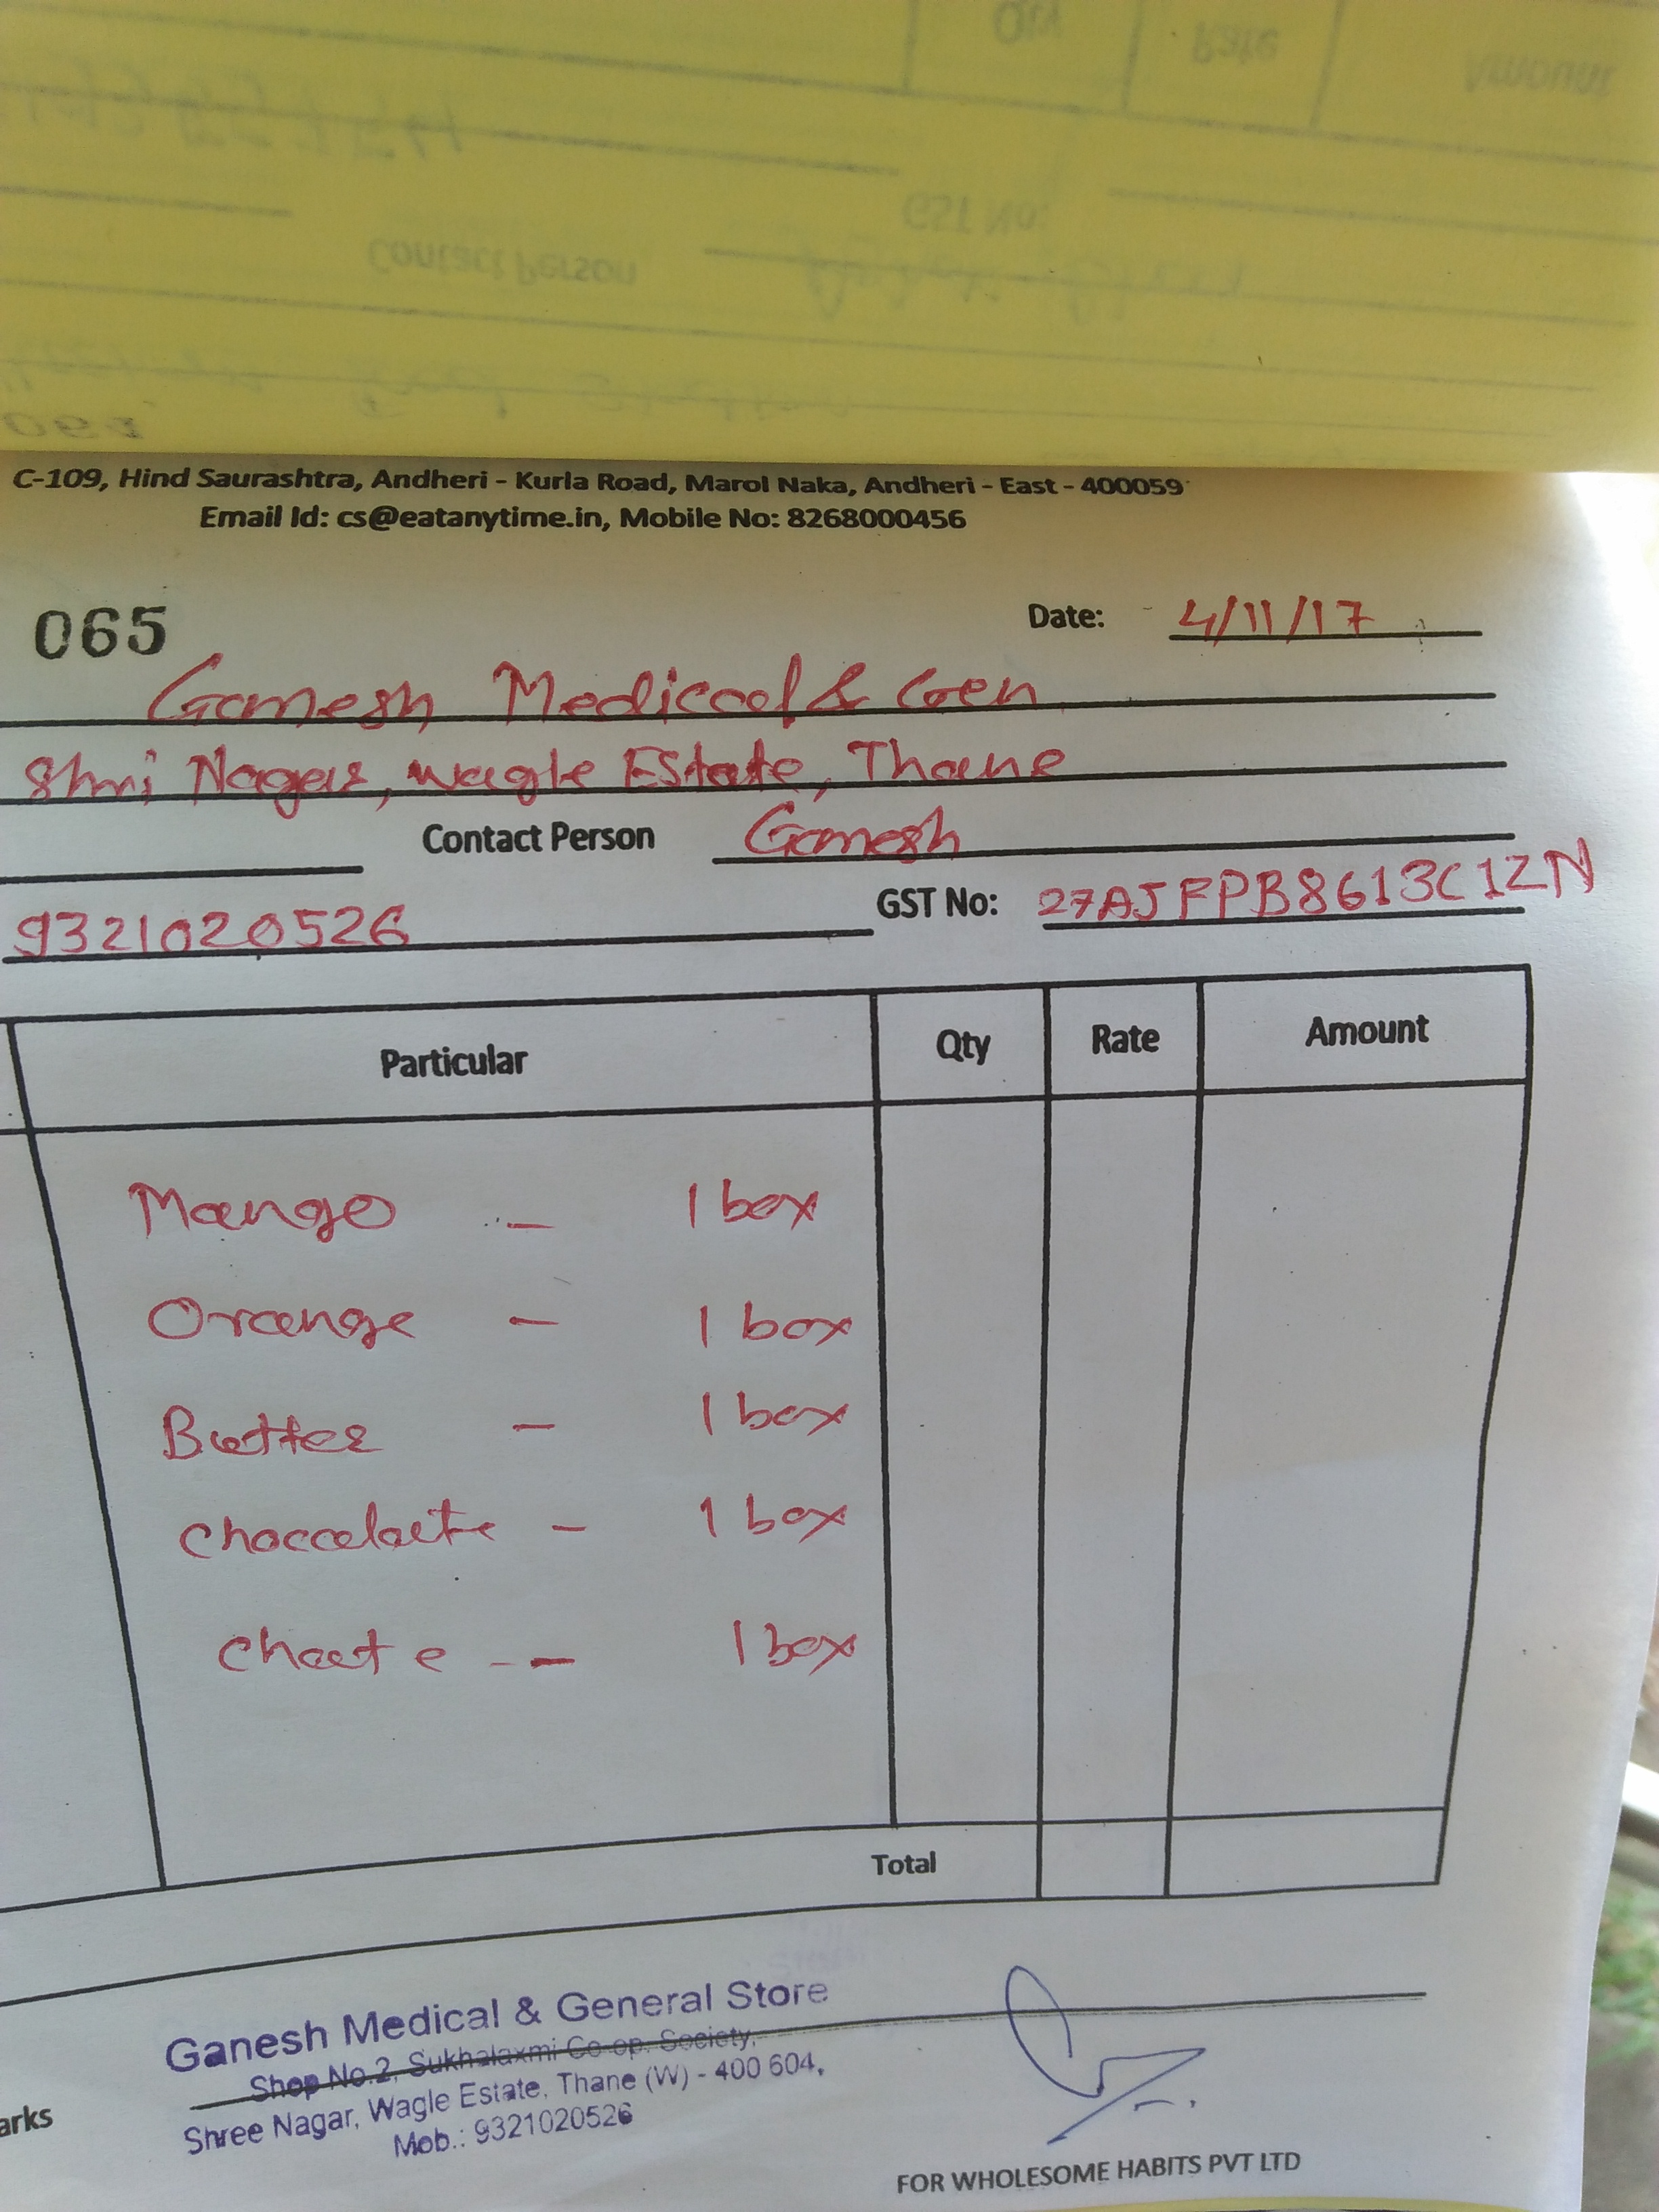 Qty Rate Amount
GST No:
Contact Person
064
C-109, Hind Saurashtra, Andheri - Kurla Road, Marol Naka, Andheri - East - 400059
Email Id: cs@eatanytime.in, Mobile No: 8268000456
065 Date: 4/11/17
Ganesh Medical & Gen
Shri Nagar, wagle Estate, Thane
Contact Person Ganesh
9321020526 GST No: 27AJFPB8613C1ZN
Particular Qty Rate Amount
Mango - 1 box
Orange - 1 box
Butter - 1 box
Choccolate - 1 box
Chate -- 1 box
Total
Ganesh Medical & General Store
Shop No.2, Sukhalaxmi Co-op. Society,
Shree Nagar, Wagle Estate, Thane (W) - 400 604,
Mob.: 9321020526
arks
FOR WHOLESOME HABITS PVT LTD